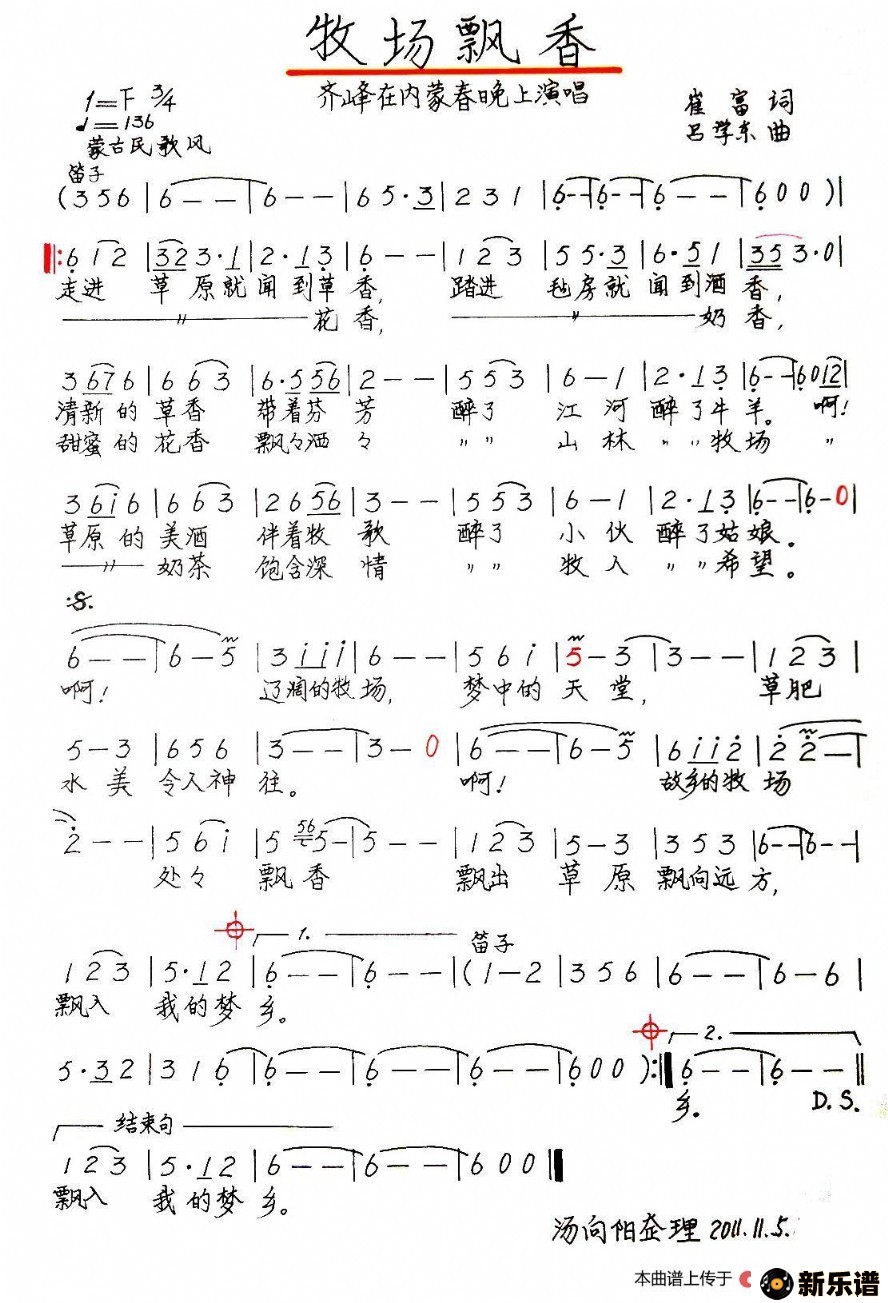 牧场飘香
1=F 3/4
齐峰在内蒙春晚上演唱
崔富词
♩=136
吕学东曲
蒙古民歌风
笛子
(356|6--|6--|65·3|231|6--|6--|6--|600)|
|:612|323·1|2·13|6--|123|55·3|6·51|353·0|
走进 草原就闻到草香, 踏进 毡房就闻到酒香,
——〃——花香, ——〃——奶香,
3676|663|6·556|2--|553|6-1|2·13|6--|6012|
清新的草香 带着芬芳 醉了 江河醉了牛羊。啊!
甜蜜的花香 飘々洒々 〃〃 山林〃〃牧场〃
3616|663|2656|3--|553|6-1|2·13|6--|6-0|
草原的美酒 伴着牧歌 醉了 小伙醉了姑娘。
—〃—奶茶 饱含深情 〃〃 牧人〃〃希望。
:S.
6--|6-5|3iii|6--|56i|5-3|3--|123|
啊! 辽阔的牧场, 梦中的天堂, 草肥
5-3|656|3--|3-0|6--|6-5|6ii2|22-|
水美令人神往。 啊! 故乡的牧场
2--|56i|5 56 5-|5--|123|5-3|353|6--|6--|
处々 飘香 飘出 草原飘向远方,
1.
笛子
123|5·12|6--|6--|(1-2|356|6--|6-6|
飘入 我的梦乡。
2.
5·32|316|6--|6--|6--|600):|6--|6--||
乡。 D.S.
结束句
123|5·12|6--|6--|600||
飘入 我的梦乡。
汤向阳整理 2011.11.5.
本曲谱上传于 新乐谱